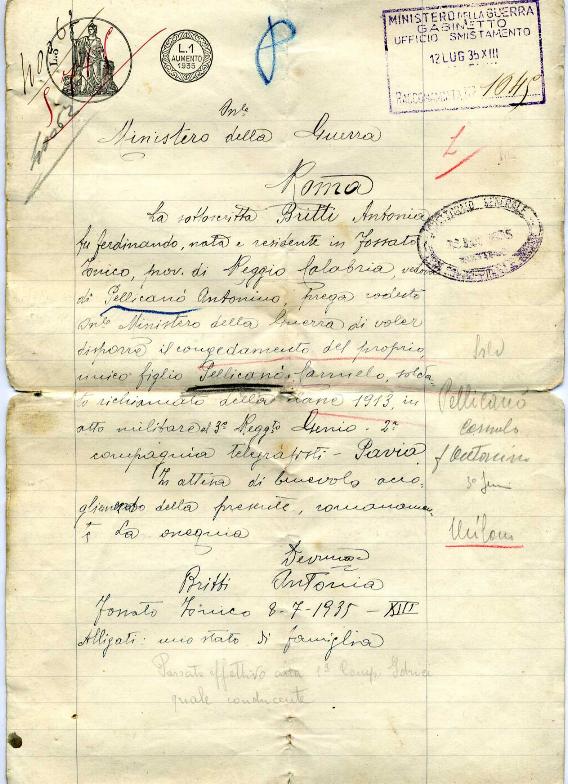 L.5
L.1
AUMENTO
1935
MINISTERO DELLA GUERRA
GABINETTO
UFFICIO SMISTAMENTO
12 LUG 35 XIII
1045
On/le
Ministero della Guerra
Roma
La sottoscritta Britti Antonia
fu Ferdinando, nata e residente in Fossato
Ionico, prov. di Reggio Calabria vedova
di Pellicanò Antonino, prega codesto
On/le Ministero della Guerra di voler
disporre il congedamento del proprio
unico figlio Pellicanò Carmelo, solda
to richiamato della classe 1913, in
atto militare al 3º Regg/to Genio - 2ª
compagnia telegrafisti - Pavia
In attesa di benevolo acco-
glimento della presente, romanamen
te La ossequia
Devma
Britti Antonia
Fossato Ionico 8-7-1935 - XIII
Alligati: uno stato di famiglia
Pellicanò
Carmelo
f Antonino
3º Genio
Milano
Passato effettivo alla 1ª Comp
quale conducente